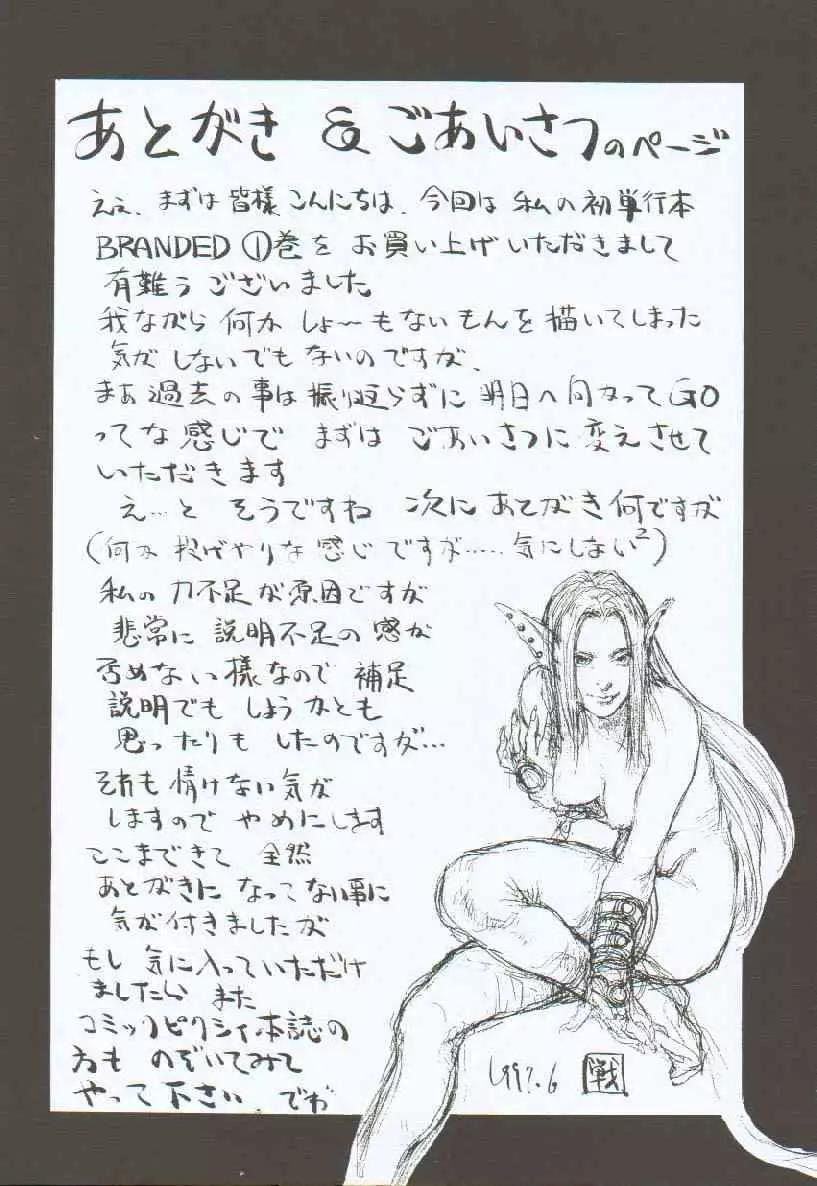 あとがき & ごあいさつのページ
ええ、まずは皆様こんにちは、今回は私の初単行本
BRANDED ①巻をお買い上げいただきまして
有難うございました
我ながら何かしょ〜もないもんを描いてしまった
気がしないでもないのですが、
まあ過去の事は振り返らずに明日へ向かってGO
ってな感じでまずはごあいさつに変えさせて
いただきます
え…と そうですね 次にあとがき何ですが
(何か投げやりな感じですが……気にしない²)
私の力不足が原因ですが
非常に説明不足の感が
否めない様なので補足
説明でもしようかとも
思ったりもしたのですが…
それも情けない気が
しますのでやめにします
ここまできて全然
あとがきになってない事に
気が付きましたが
もし気に入っていただけ
ましたら また
コミックピクシィ本誌の
方ものぞいてみて
やって下さい でわ
1997.6 戦